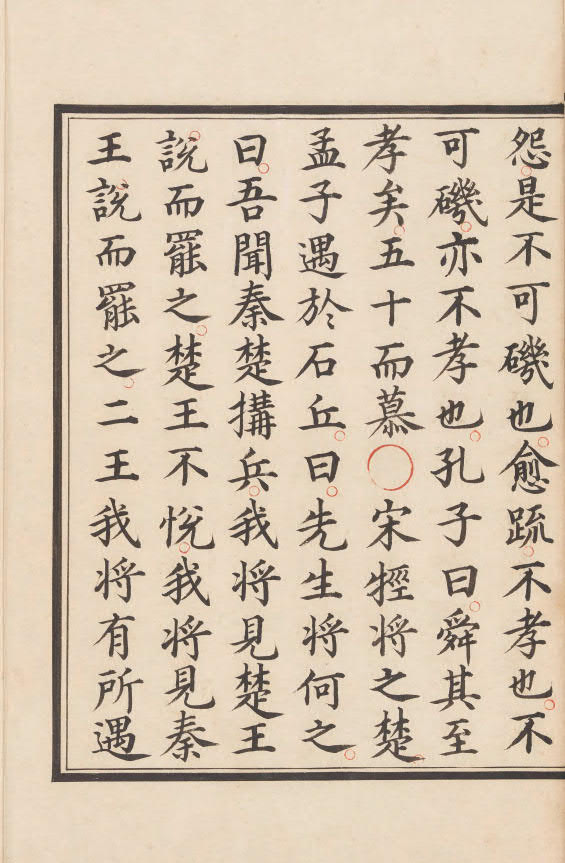 怨是不可磯也愈疏不孝也不
可磯亦不孝也孔子曰舜其至
孝矣五十而慕○宋牼將之楚
孟子遇於石丘曰先生將何之
曰吾聞秦楚搆兵我將見楚王
說而罷之楚王不悅我將見秦
王說而罷之二王我將有所遇